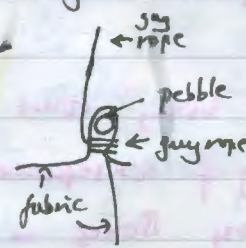 guy
rope
pebble
guy rope
fabric